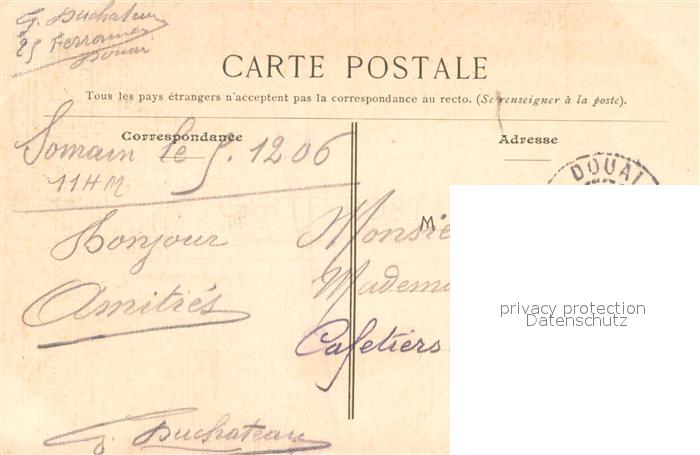 G. Duchateau
25 Ferronniers
Douai
CARTE POSTALE
Tous les pays étrangers n'acceptent pas la correspondance au recto. (Se renseigner à la poste).
Correspondance
Adresse
Somain le 5. 12 06
11 H M
DOUAI
Bonjour
Amitiés
M
Monsie
Madem
Cafetiers
privacy protection
Datenschutz
G. Duchateau